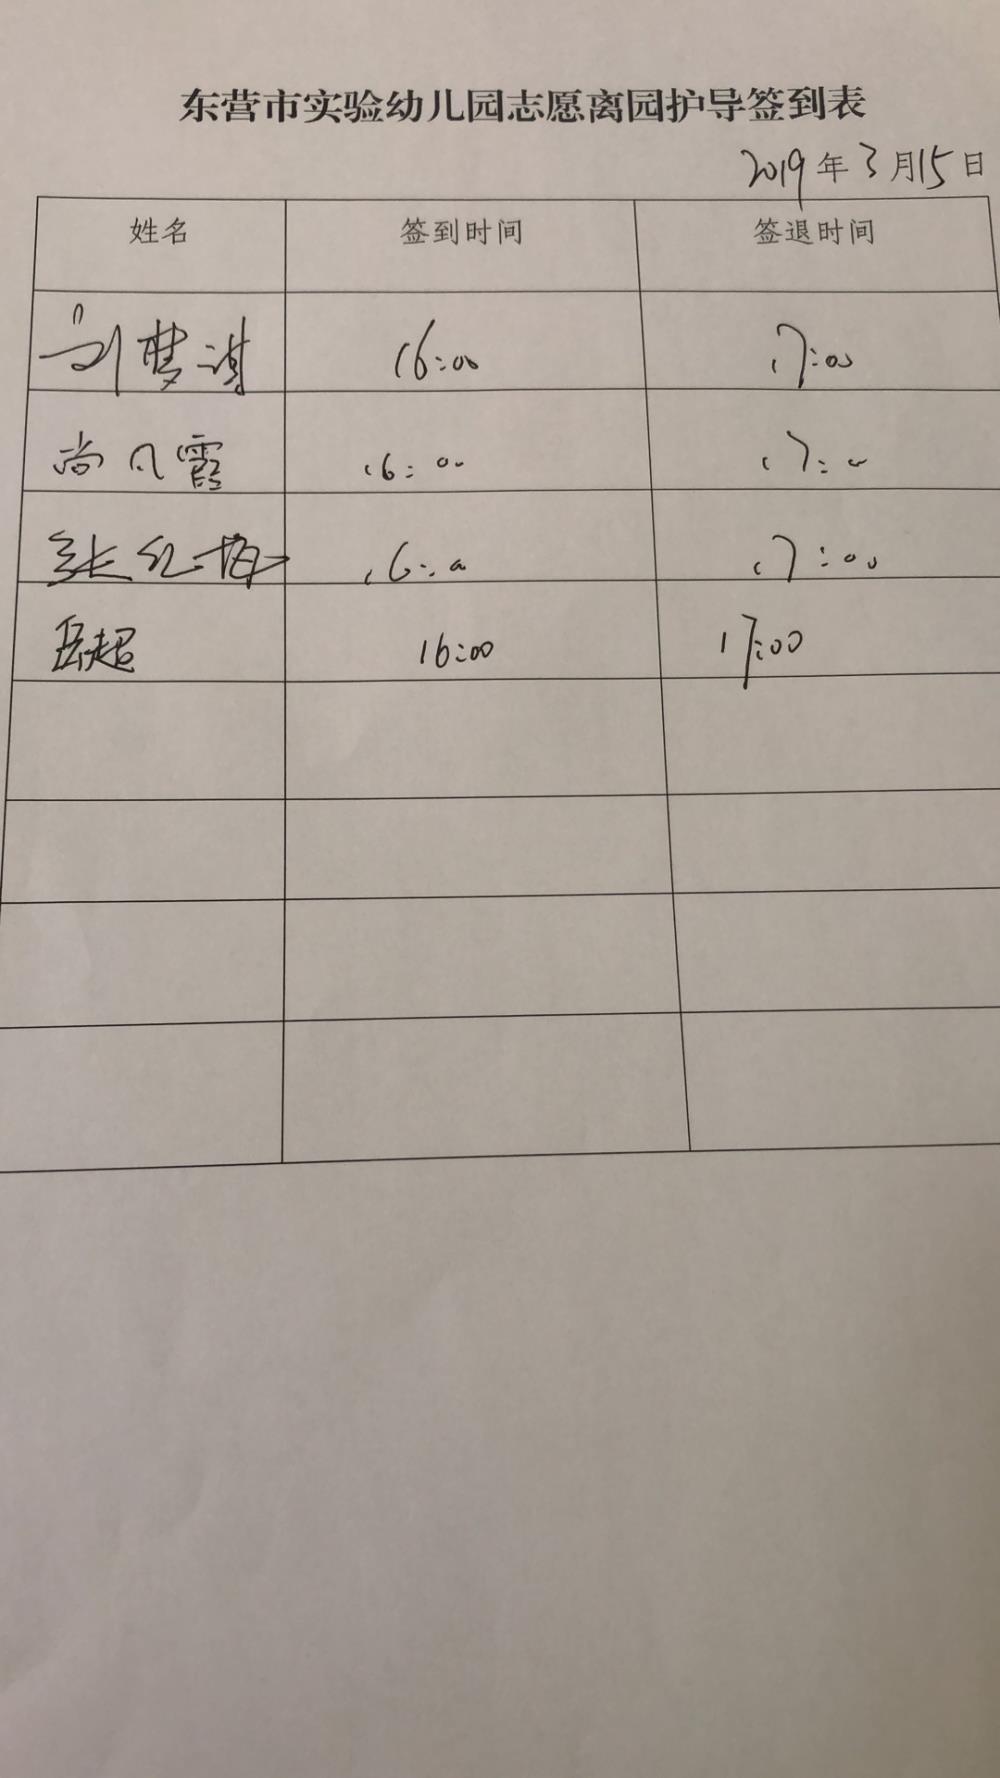 东营市实验幼儿园志愿离园护导签到表
2019年3月15日
姓名 签到时间 签退时间
刘梦淇 16:00 17:00
尚凡霞 16:00 17:00
张红梅 16:00 17:00
岳超 16:00 17:00